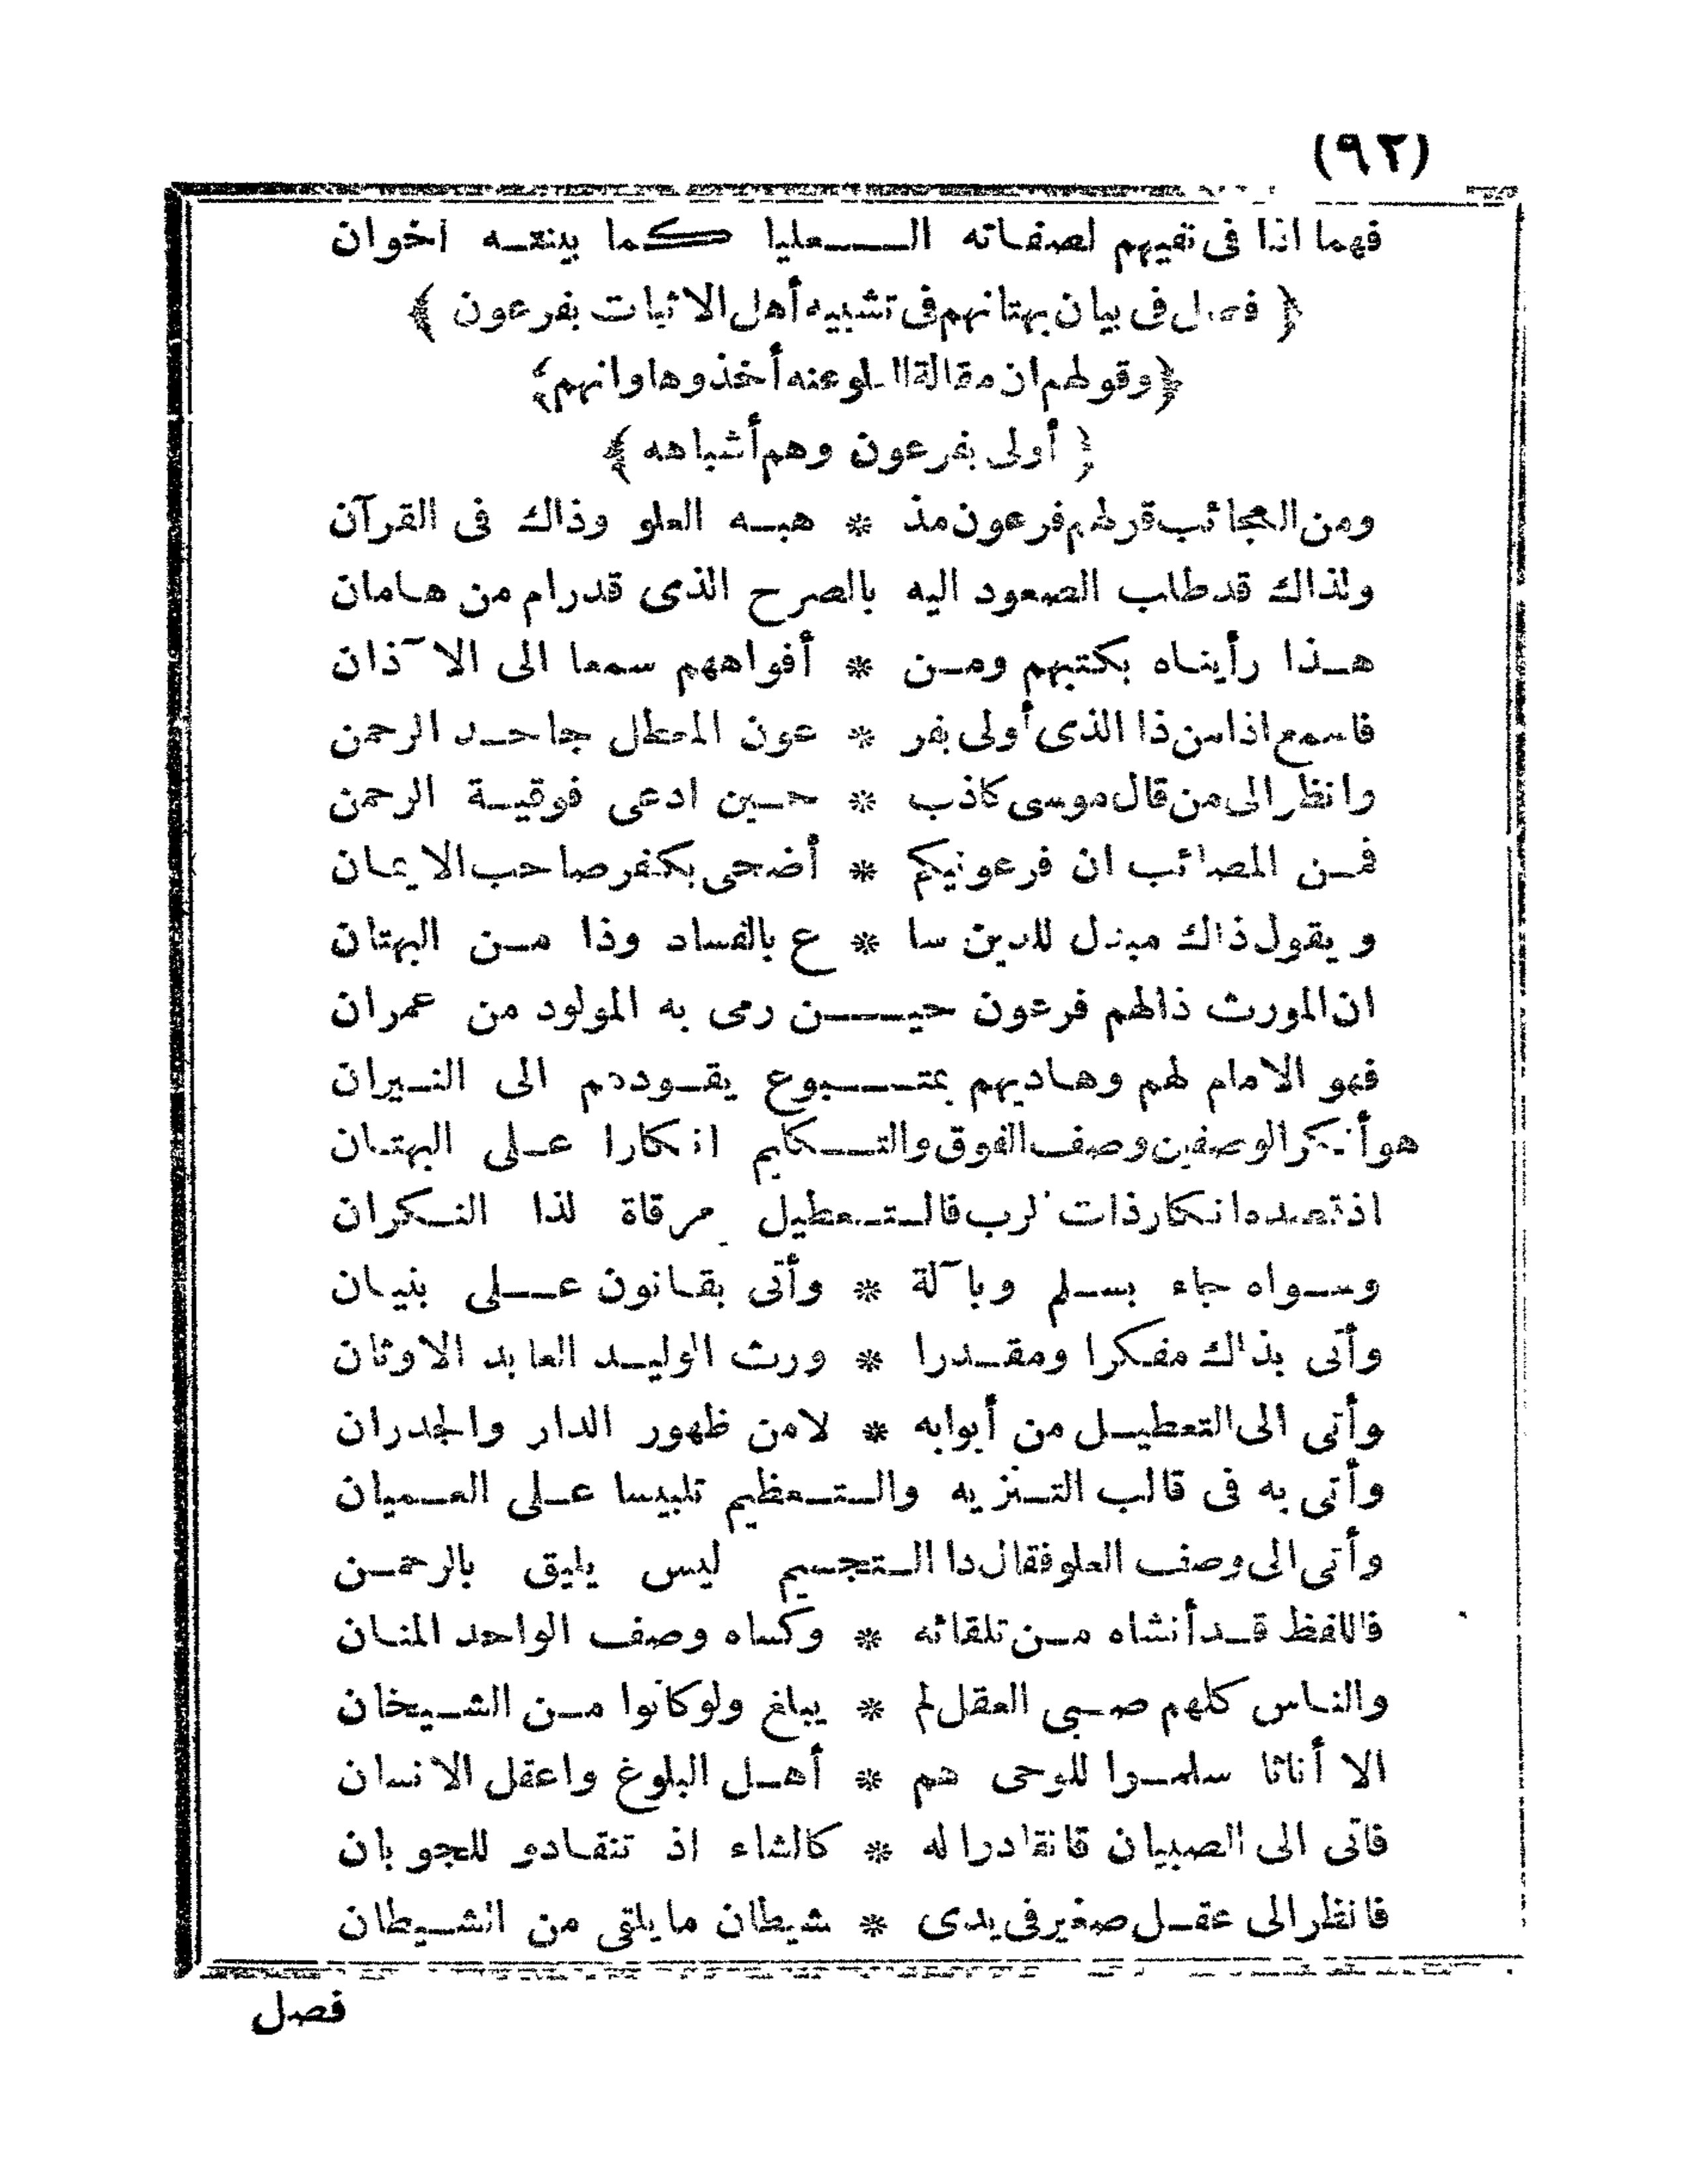 (٩٢)
فهما اذا فى نفيهم لصفاته العليا كما بيننه اخوان
﴿ فصل فى بيان بهتانهم فى تشبيه أهل الاثبات بفرعون ﴾
﴿وقولهم ان مقالة العلو عنه أخذوها وانهم﴾
﴿ أولى بفرعون وهم أشباهه ﴾
ومن العجائب قولهم فرعون مذ * هبه العلو وذاك فى القرآن
ولذاك قد طلب الصعود اليه بالصرح الذى قد رام من هامان
هذا رأيناه بكتبهم ومن * أفواههم سمعا الى الآذان
فاسمع اذا من ذا الذى أولى بفر * عون المعطل جاحد الرحمن
وانظر الى من قال موسى كاذب * حين ادعى فوقية الرحمن
فمن المصائب ان فرعونيكم * أضحى بكفر صاحب الايمان
ويقول ذاك مبدل للدين سا * ع بالفساد وذا من البهتان
ان المورث ذالهم فرعون حين رمى به المولود من عمران
فهو الامام لهم وهاديهم بمتبوع يقودهم الى النيران
هو أنكر الوصفين وصف الفوق والتكليم انكارا على البهتان
اذ قصده انكار ذات الرب فالتعطيل مرقاة لذا النكران
وسواه جاء بسلم وبآلة * وأتى بقانون على بنيان
وأتى بذاك مفكرا ومقدرا * ورث الوليد العابد الاوثان
وأتى الى التعطيل من أبوابه * لا من ظهور الدار والجدران
وأتى به فى قالب التنزيه والتعظيم تلبيسا على العميان
وأتى الى وصف العلو فقال ذا التجسيم ليس يليق بالرحمن
فاللفظ قد أنشاه من تلقائه * وكساه وصف الواحد المنان
والناس كلهم صبى العقل لم * يبلغ ولو كانوا من الشيخان
الا أناثا سلموا للوحى هم * أهل البلوغ واعقل الانسان
فاتى الى الصبيان فانقادوا له * كالشاء اذ تنقاد للجوبان
فانظر الى عقل صغير فى يدى * شيطان ما يلقى من الشيطان
فصل